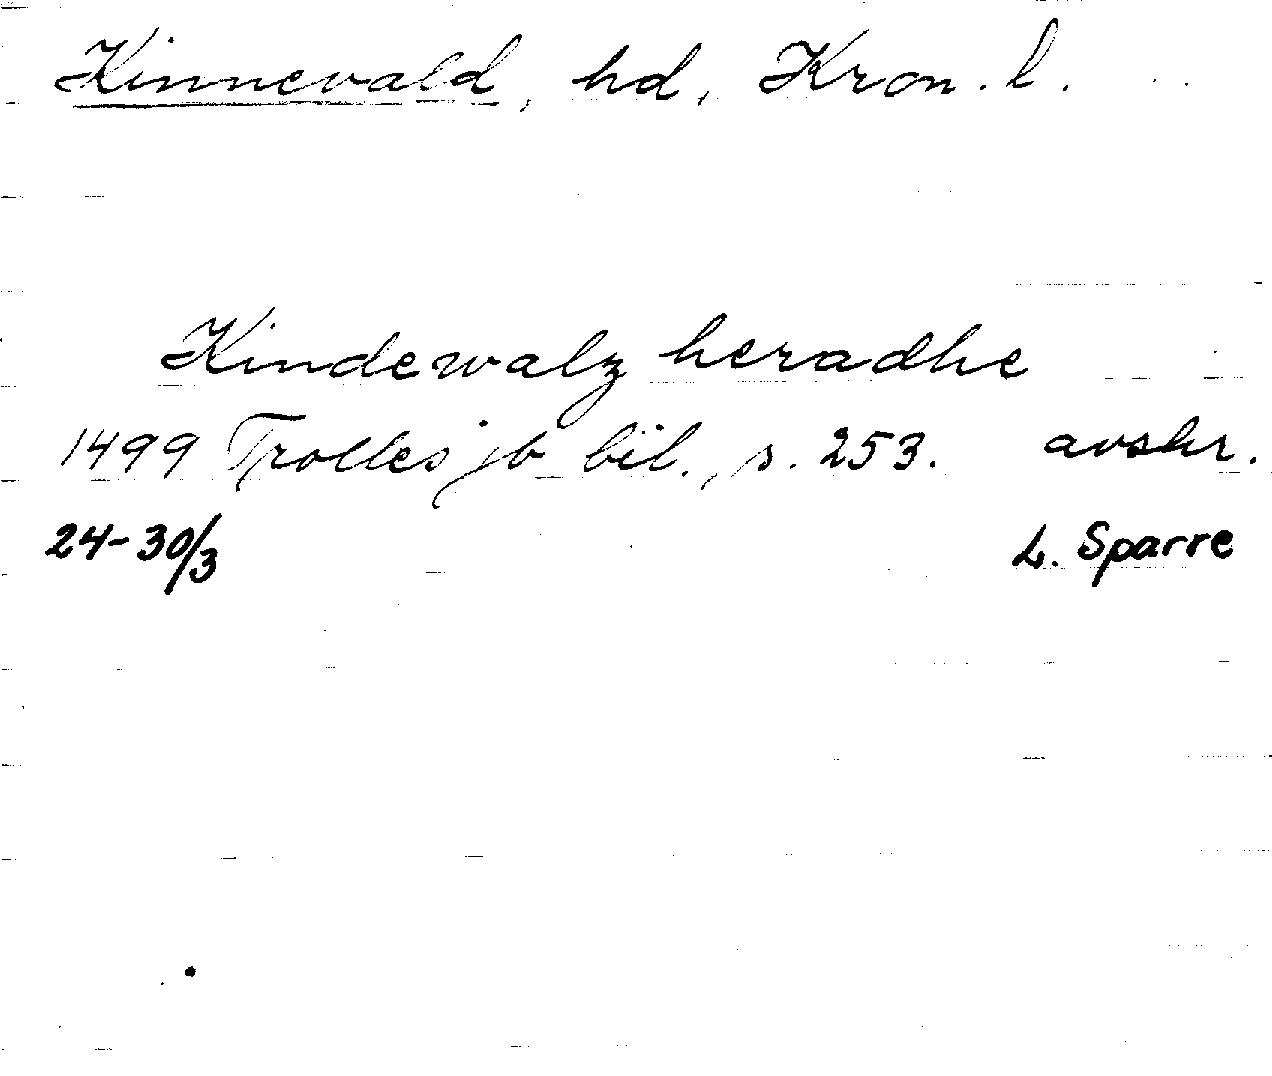 Kinnevald, hd, Kron. l.
Kindewalz heradhe
1499 Trolles jb bil., s. 253. avskr.
24-30/3 L. Sparre